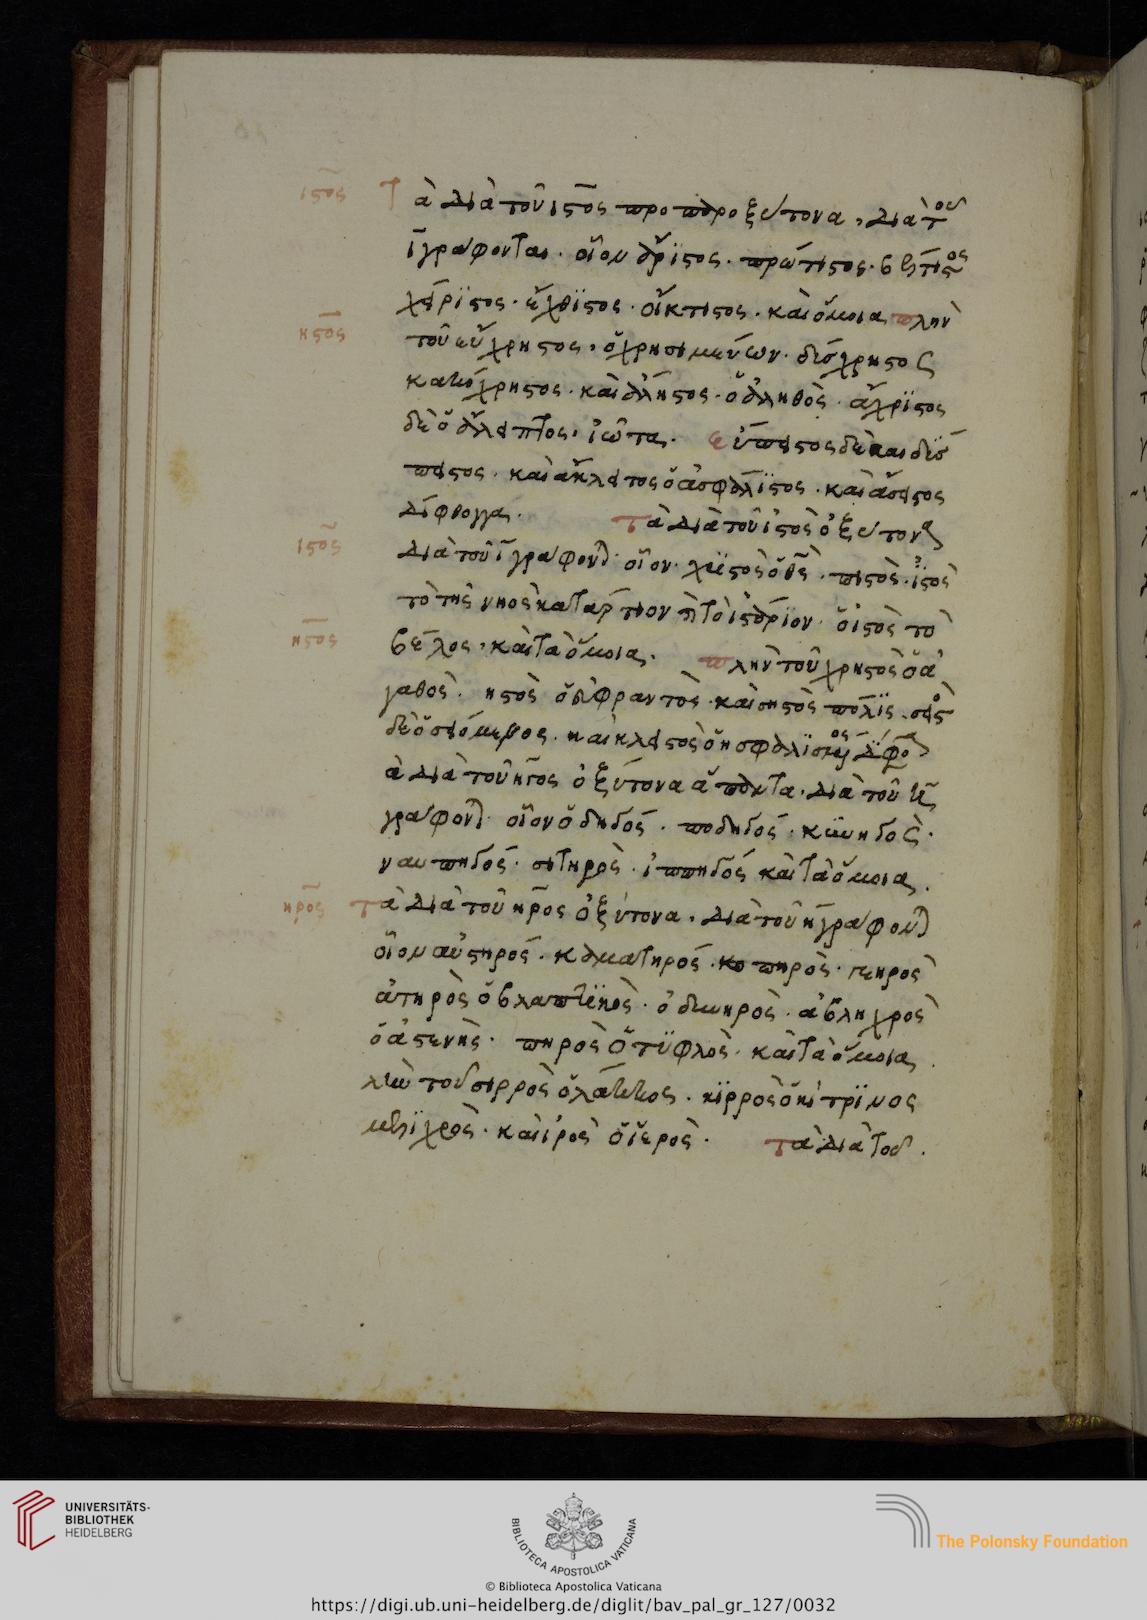 ιστος
Τὰ διὰ τοῦ ιστος προπαροξύτονα, διὰ τοῦ
ῑ γράφονται. οἷον ἄριστος. πρώτιστος. βέλτιστος
χείριστος. ἔχθιστος. οἴκτιστος. καὶ ὅμοια πλὴν
ηστος
τοῦ εὔχρηστος, ὁ χρησιμεύων. δύσχρηστος
κατάχρηστος. καὶ ἄληστος. ὁ ἀληθὴς. ἄχριστος
δὲ ὁ ἄλειπτος, ἰῶτα. εὔπειστος δὲ καὶ δύσ
πειστος. καὶ ἄκλειστος ὁ ἀσφάλιστος. καὶ ἄσειστος
δίφθογγα. Τὰ διὰ τοῦ ιστος ὀξύτονα
ιστος
διὰ τοῦ ῑ γράφονται. οἷον χριστὸς ὁ θεὸς. πιστὸς. ἱστὸς
τὸ τῆς νηὸς κατάρτιον ἢ τὸ ἱστάριον. ὀϊστὸς τὸ
ηστος
βέλος, καὶ τὰ ὅμοια. πλὴν τοῦ χρηστὸς ὁ ἀ
γαθὸς. πολὺς. σειστὸς
δὲ ὁ σειόμενος. καὶ κλειστὸς ὁ ἠσφαλισμένος δίφθογγα
ὰ διὰ τοῦ ηγος ὀξύτονα ἅπαντα, διὰ τοῦ η
γράφονται. οἷον ὁδηγός. ποδηγός. κυνηγός.
ναυπηγός. σιτηγὸς. ἱππηγός καὶ τὰ ὅμοια.
ηρος
Τὰ διὰ τοῦ ηρος ὀξύτονα, διὰ τοῦ η γράφονται
οἷον αὐστηρός. καματηρός. κοπηρὸς.
ἀτηρὸς ὁ βλαπτικὸς. ὀδυνηρὸς. ἀβληχρὸς
ὁ ἀσθενὴς. πηρὸς ὁ τυφλὸς. καὶ τὰ ὅμοια.
ἄνευ τοῦ σιρρὸς ὁ λάκκος. κιρρὸς ὁ κίτρινος
μελιχρὸς. καὶ ἱρὸς ὁ ἱερὸς. Τὰ διὰ τοῦ.
UNIVERSITÄTS-
BIBLIOTHEK
HEIDELBERG
BIBLIOTECA APOSTOLICA VATICANA
The Polonsky Foundation
© Biblioteca Apostolica Vaticana
https://digi.ub.uni-heidelberg.de/diglit/bav_pal_gr_127/0032